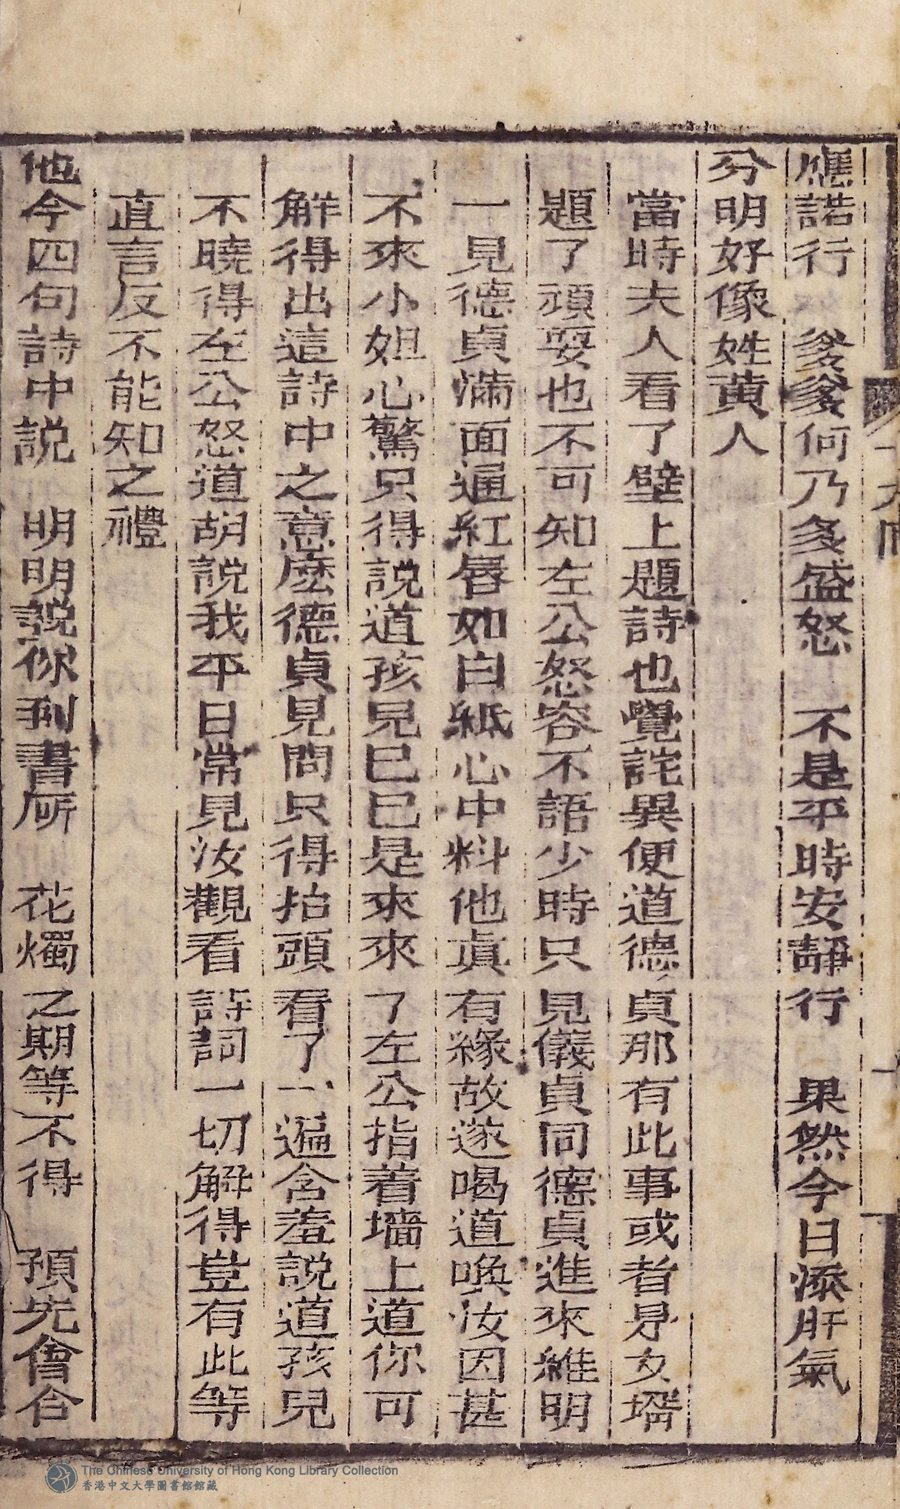 應諾行　爹爹何乃多盛怒　不是平時安靜行　果然今日添肝氣
分明好像姓黄人
當時夫人看了壁上題詩也覺詫異便道德貞那有此事或者是女壻
題了頑耍也不可知左公怒容不語少時只見儀貞同德貞進來維明
一見德貞滿面通紅唇如白紙心中料他眞有緣故遂喝道喚汝因甚
不來小姐心驚只得説道孩兒已已是來來了左公指着墻上道你可
解得出這詩中之意麽德貞見問只得抬頭看了一遍含羞説道孩兒
不曉得左公怒道胡説我平日常見汝觀看詩詞一切解得豈有此等
直言反不能知之禮
他今四句詩中説　明明説你到書所　花燭之期等不得　預先會合
The Chinese University of Hong Kong Library Collection
香港中文大學圖書館館藏